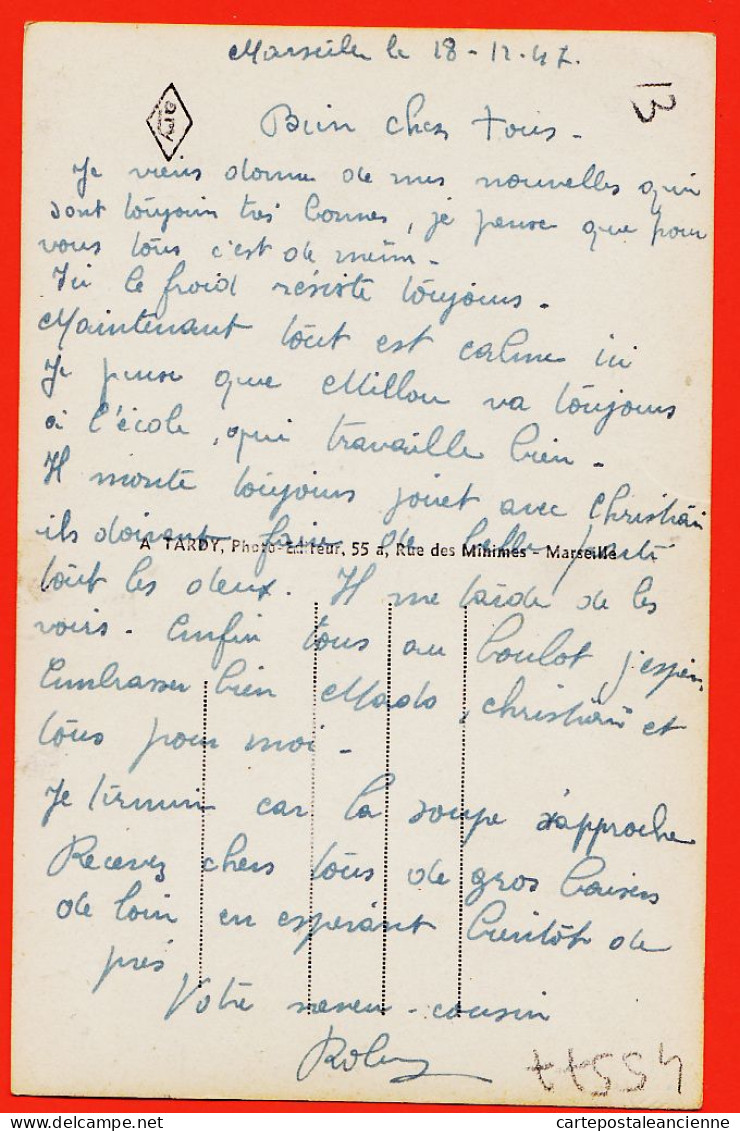 Marseille le 18-12-47.
13
Bien chers tous -
Je viens donner de mes nouvelles qui
sont toujours très bonnes, je pense que pour
vous tous c'est de même -
Ici le froid résiste toujours.
Maintenant tout est calme ici
Je pense que Millou va toujours
à l'école, qui travaille bien -
Il monte toujours jouet avec Christian
ils doivent faire de belle parti
A TARDY, Photo-Editeur, 55 a, Rue des Minimes - Marseille
tout les deux. Il me tarde de les
voirs. Enfin tous au boulot j'espère
Embrasser bien Mado, Christian et
tous pour moi -
Je termine car la soupe s'approche
Recevez chers tous de gros baisers
de loin en espérant bientôt de
près
Votre neveu-cousin
44554
DELCAMPE.NET
cartepostaleancienne